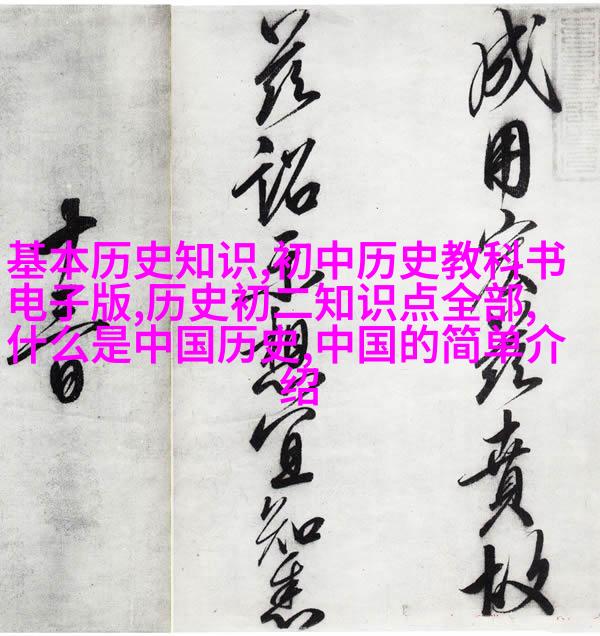 基本历史知识,初中历史教科书
电子版,历史初二知识点全部,
什么是中国历史,中国的简单介
绍
成用賁故
茲詔示想宜知悉
十三日